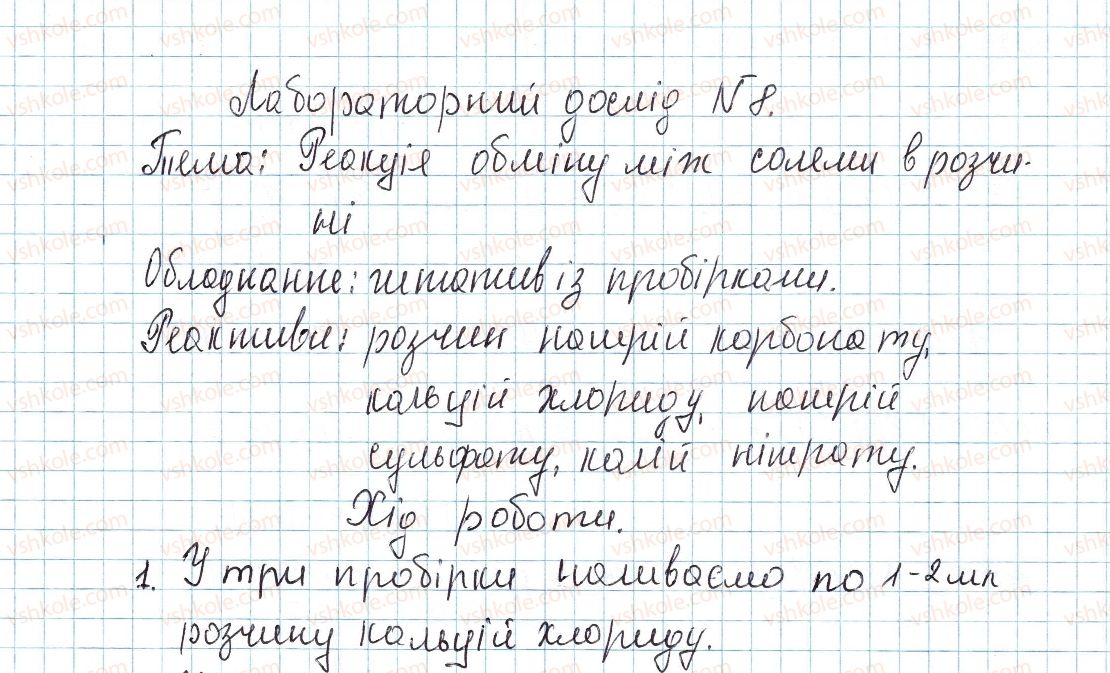 Лабораторний дослід №8.
Тема: Реакція обміну між солями в розчи-
ні
Обладнання: штатив із пробірками.
Реактиви: розчин натрій карбонату,
кальцій хлориду, натрій
сульфату, калій нітрату.
Хід роботи.
1. У три пробірки наливаємо по 1-2 мл
розчину кальцій хлориду.